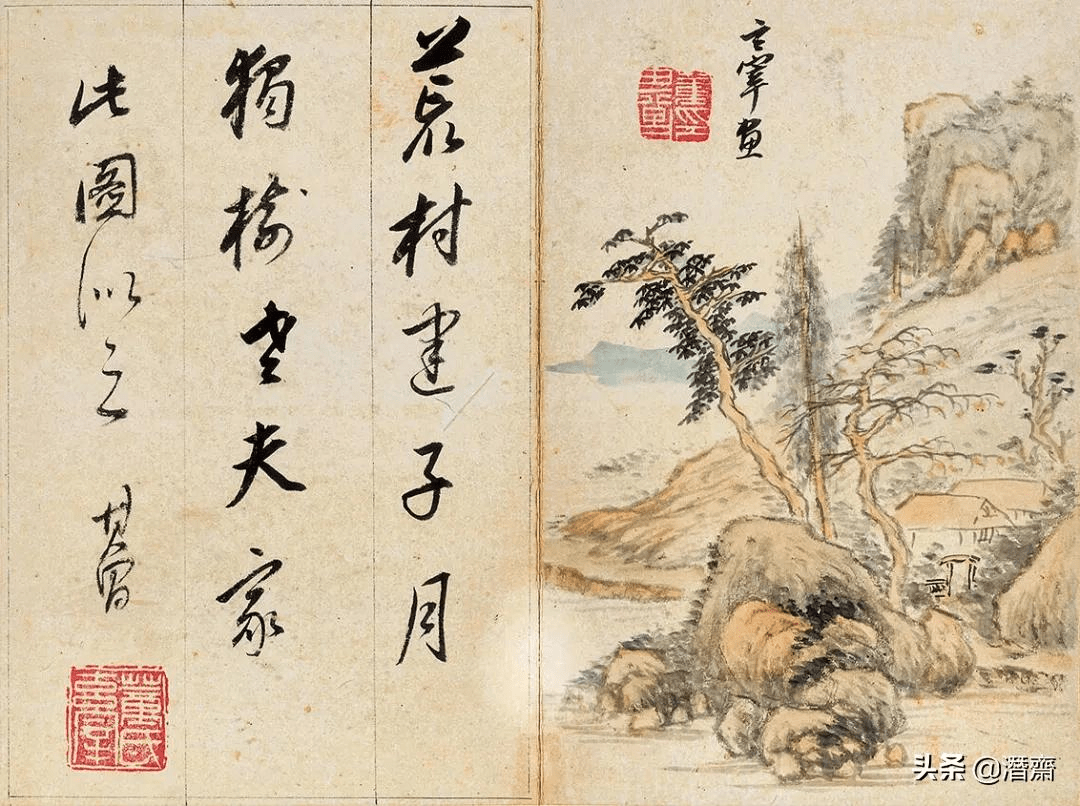 玄宰畫
荒村建子月
獨樹老夫家
此圖似之 其昌
头条 @潛齋